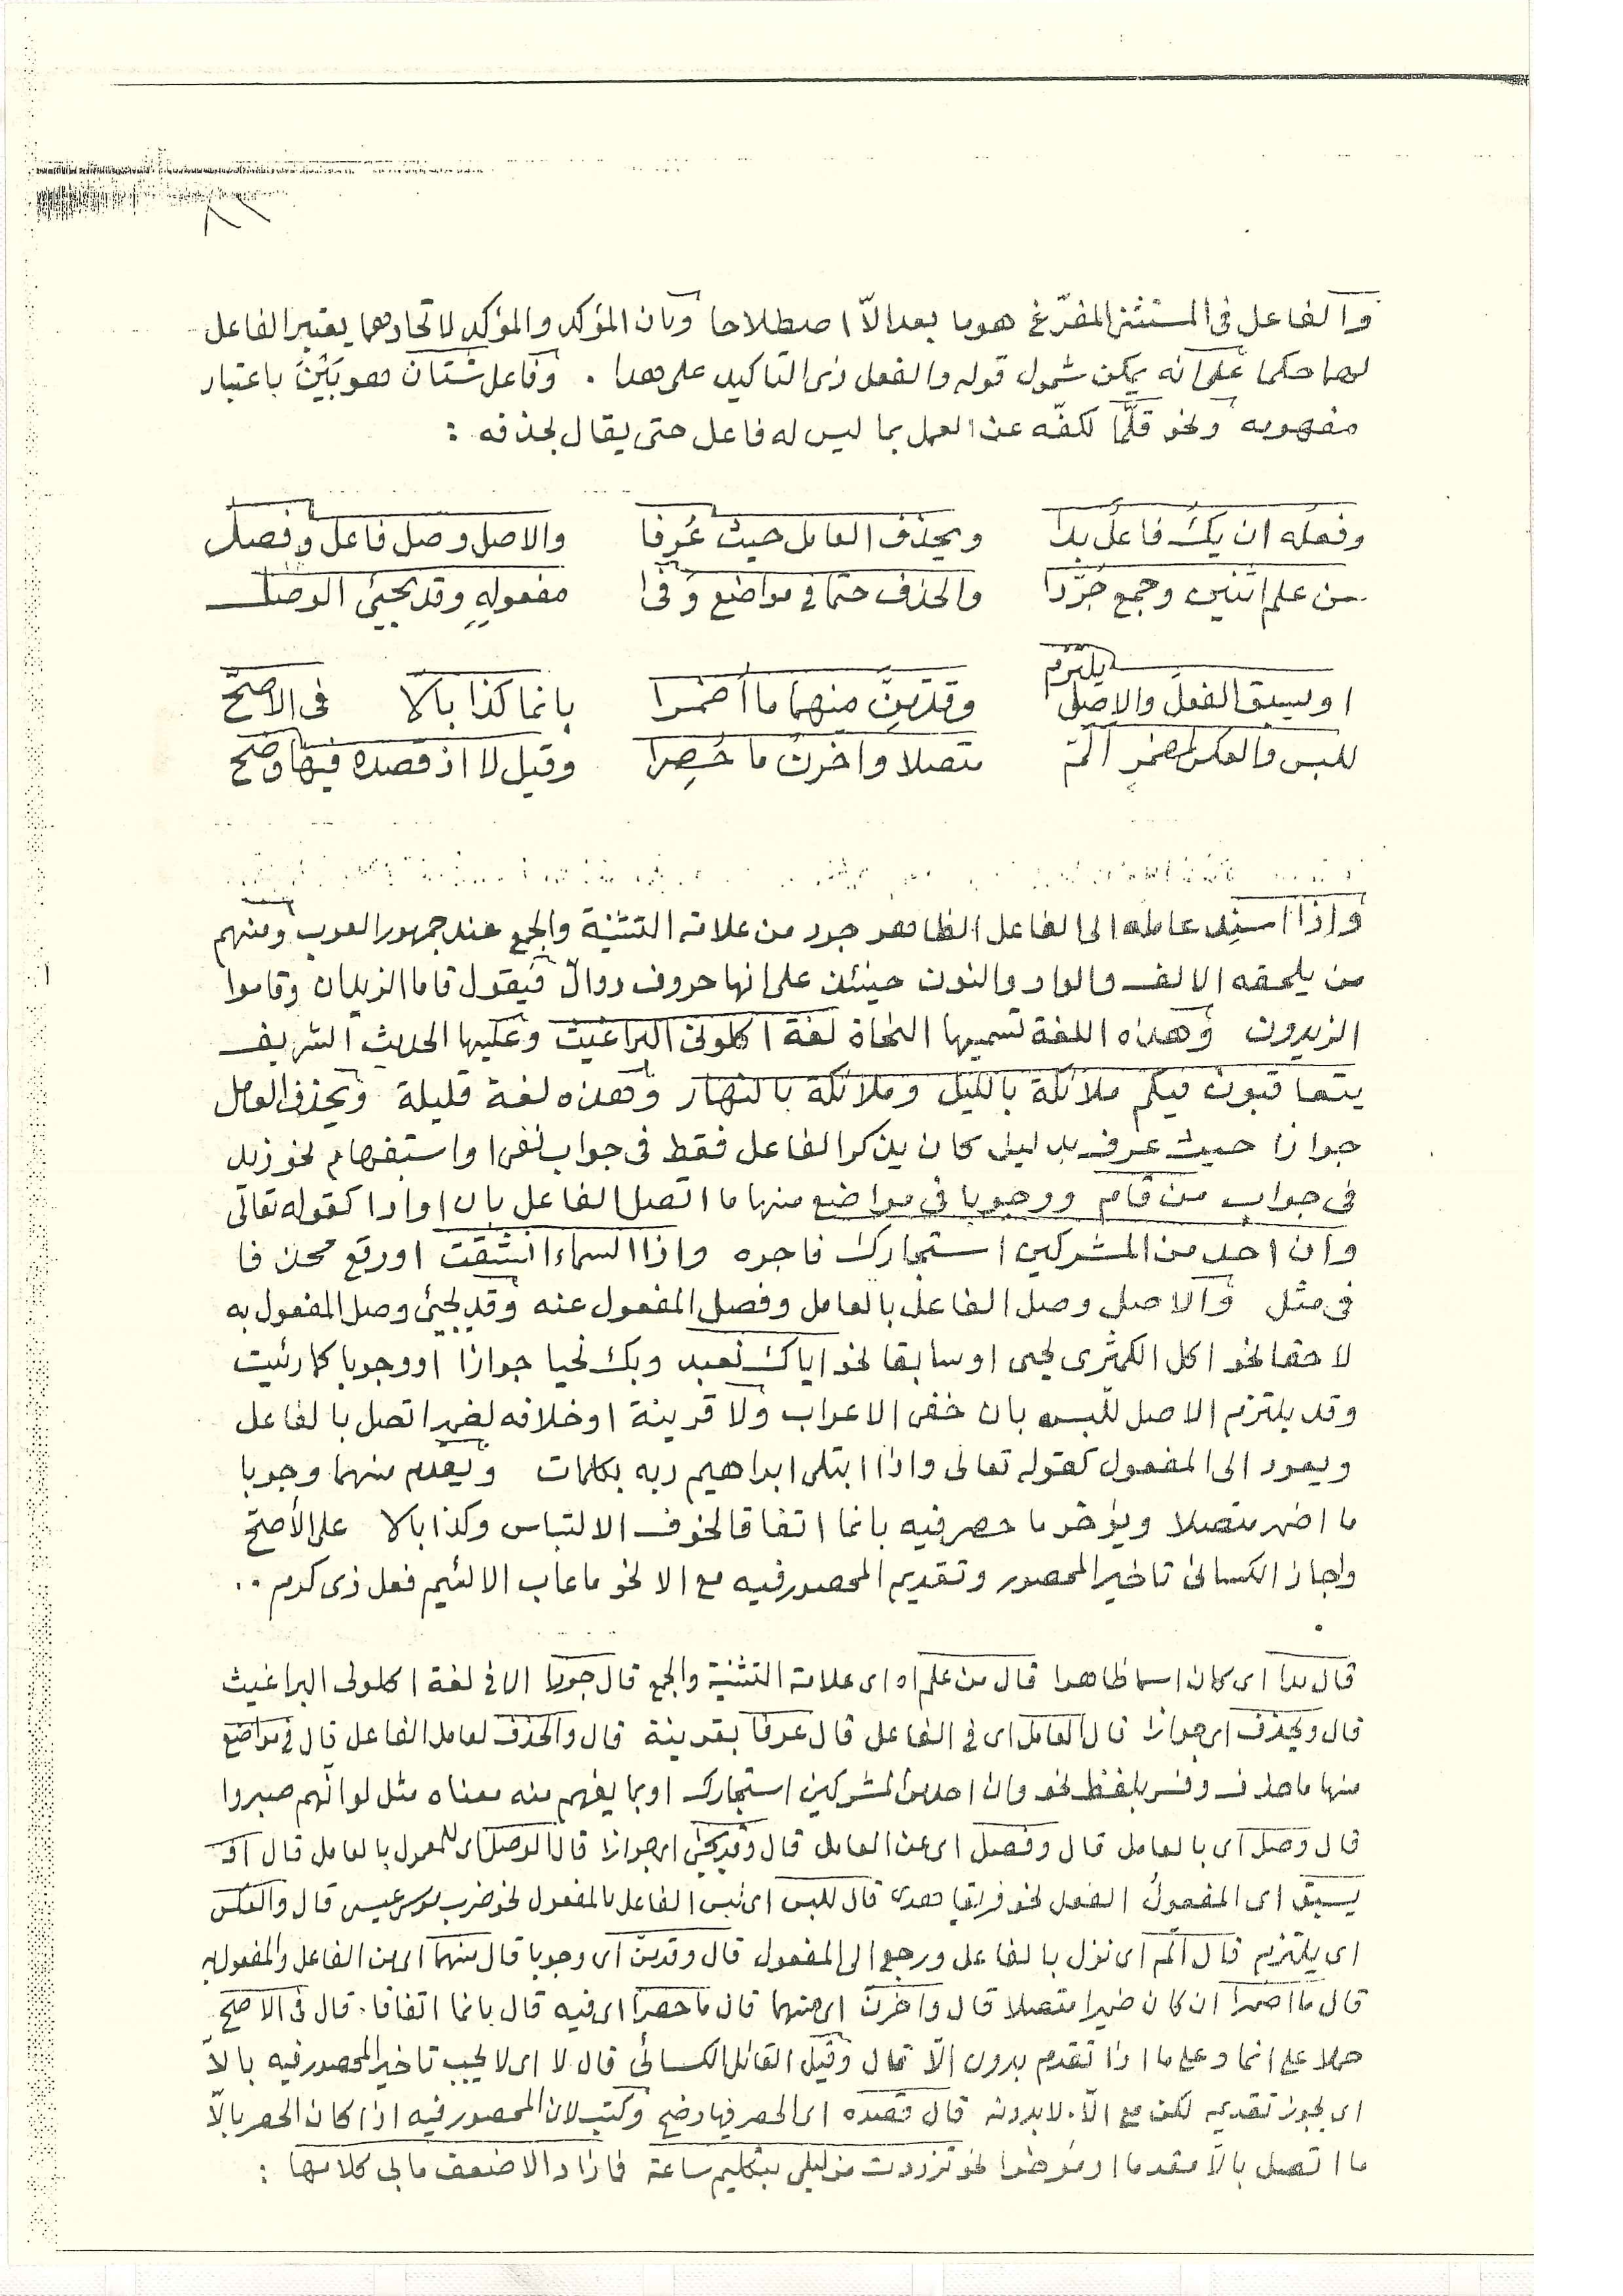 والفاعل فى المستثنى المفرّغ هو ما بعد الّا اصطلاحا وكان المؤكد والمؤكد لاتحادهما يعتبر الفاعل
لهما حكما على انه يمكن شمول قوله والفعل ذى التاكيد على هدا . وفاعل شتان هو بَيْنَ باعتبار
مفهومه ونحو قلّما لكفّه عن العمل بما ليس له فاعل حتى يقال بحذفه :
وفعله ان يك فاعل بدا ويحذف العامل حيث عُرفا والاصل وصل فاعل وفصل
من علم اثنين وجمع جُرّدا والحذف حتما فى مواضع وَفَى مفعولهِ وقد يجيئ الوصل
او يسبق الفعل والاصل يلتزم وقدّمنّ منهما ما أضمرا بانما كذا بالّا فى الاصحّ
للبس والعكس لمضمر المّ متصلا واخرن ما حُصِرا وقيل لا اذ قصده فيها وضح
واذا اسند عامله الى الفاعل الظاهر جرد من علامة التثنية والجمع عند جمهور العرب ومنهم
من يلحقه الالف والواو والنون حينئذ على انها حروف دوالّ فيقول قاما الزيدان وقاموا
الزيدون وهذه اللغة تسميها النحاة لغة اكلونى البراغيث وعليها الحديث الشريف
يتعاقبون فيكم ملائكة بالليل وملائكة بالنهار وهذه لغة قليلة ويحذف العامل
جوازا حيث عرف بدليل كان يذكر الفاعل فقط فى جواب نفى او استفهام نحو زيد
فى جواب من قام ووجوبا فى مواضع منها ما اتصل الفاعل بان او اذا كقوله تعالى
وان احد من المشركين استجارك فاجره واذا السماء انشقت او رفع محذوفا
فى مثل والاصل وصل الفاعل بالعامل وفصل المفعول عنه وقد يجيئ وصل المفعول به
لاحقا نحو اكل الكمثرى يحيى او سابقا نحو اياك نعبد وبك نحيا جوازا او وجوبا كما رئيت
وقد يلتزم الاصل للّبس بان خفى الاعراب ولا قرينة او خلافه لضمير اتصل بالفاعل
ويعود الى المفعول كقوله تعالى واذا ابتلى ابراهيم ربه بكلمات ويقدم منهما وجوبا
ما اضمر متصلا ويؤخر ما حصر فيه بانما اتفاقا لخوف الالتباس وكذا بالا على الأصحّ
واجاز الكسائى تاخير المحصور وتقديم المحصور فيه مع الا نحو ما عاب الا لئيم فعل ذى كرم ..
قال بدا اى كان اسما ظاهرا قال من علم اه اى علامة التثنية والجمع قال جردا الا فى لغة اكلونى البراغيث
قال ويحذف اى جوازا قال العامل اى فى الفاعل قال عرفا بقرينة قال والحذف لعامل الفاعل قال فى مواضع
منها ما حذف وفسر بلفظ نحو وان احد من المشركين استجارك او بما يفهم منه معناه مثل لو انّهم صبروا
قال وصل اى بالعامل قال وفصل اى عن العامل قال وقد يجئ اى جوازا قال الوصل اى للمعمول بالعامل قال او
يسبق اى المفعولُ الفعل نحو فريقا هدى قال للبس اى لبس الفاعل بالمفعول نحو ضرب موسى عيسى قال والعكس
اى يلتزم قال المّ اى نزل بالفاعل ورجع الى المفعول قال وقدمنّ اى وجوبا قال منهما اى من الفاعل والمفعول به
قال ما اضمرا ان كان ضميرا متصلا قال واخرن اى منهما قال ما حصرا اى فيه قال بانما اتفاقا . قال فى الاصح
حملا على انما وعلى ما اذا تقدم بدون الّا قال وقيل القائل الكسائى قال لا اى لا يجب تاخير المحصور فيه بالّا
اى يجوز تقديمه لكن مع الّا . لا بدونه قال قصده اى الحصر فيها وضح وكتب لان المحصور فيه اذا كان الحصر بالّا
ما اتصل بالّا مقدما او مؤخرا نحو تزودت من ليلى بتكليم ساعة فما زاد الا ضعف ما بى كلامها :